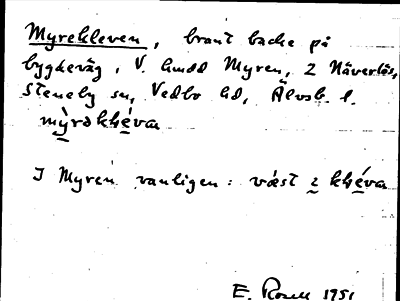 Myrekleven, brant backe på
bygdeväg, V. hmdd Myren, 2 Näverlös,
Steneby sn, Vedbo hd, Älvsb. l.
I Myren vanligen: väst i
E. Rosell 1951